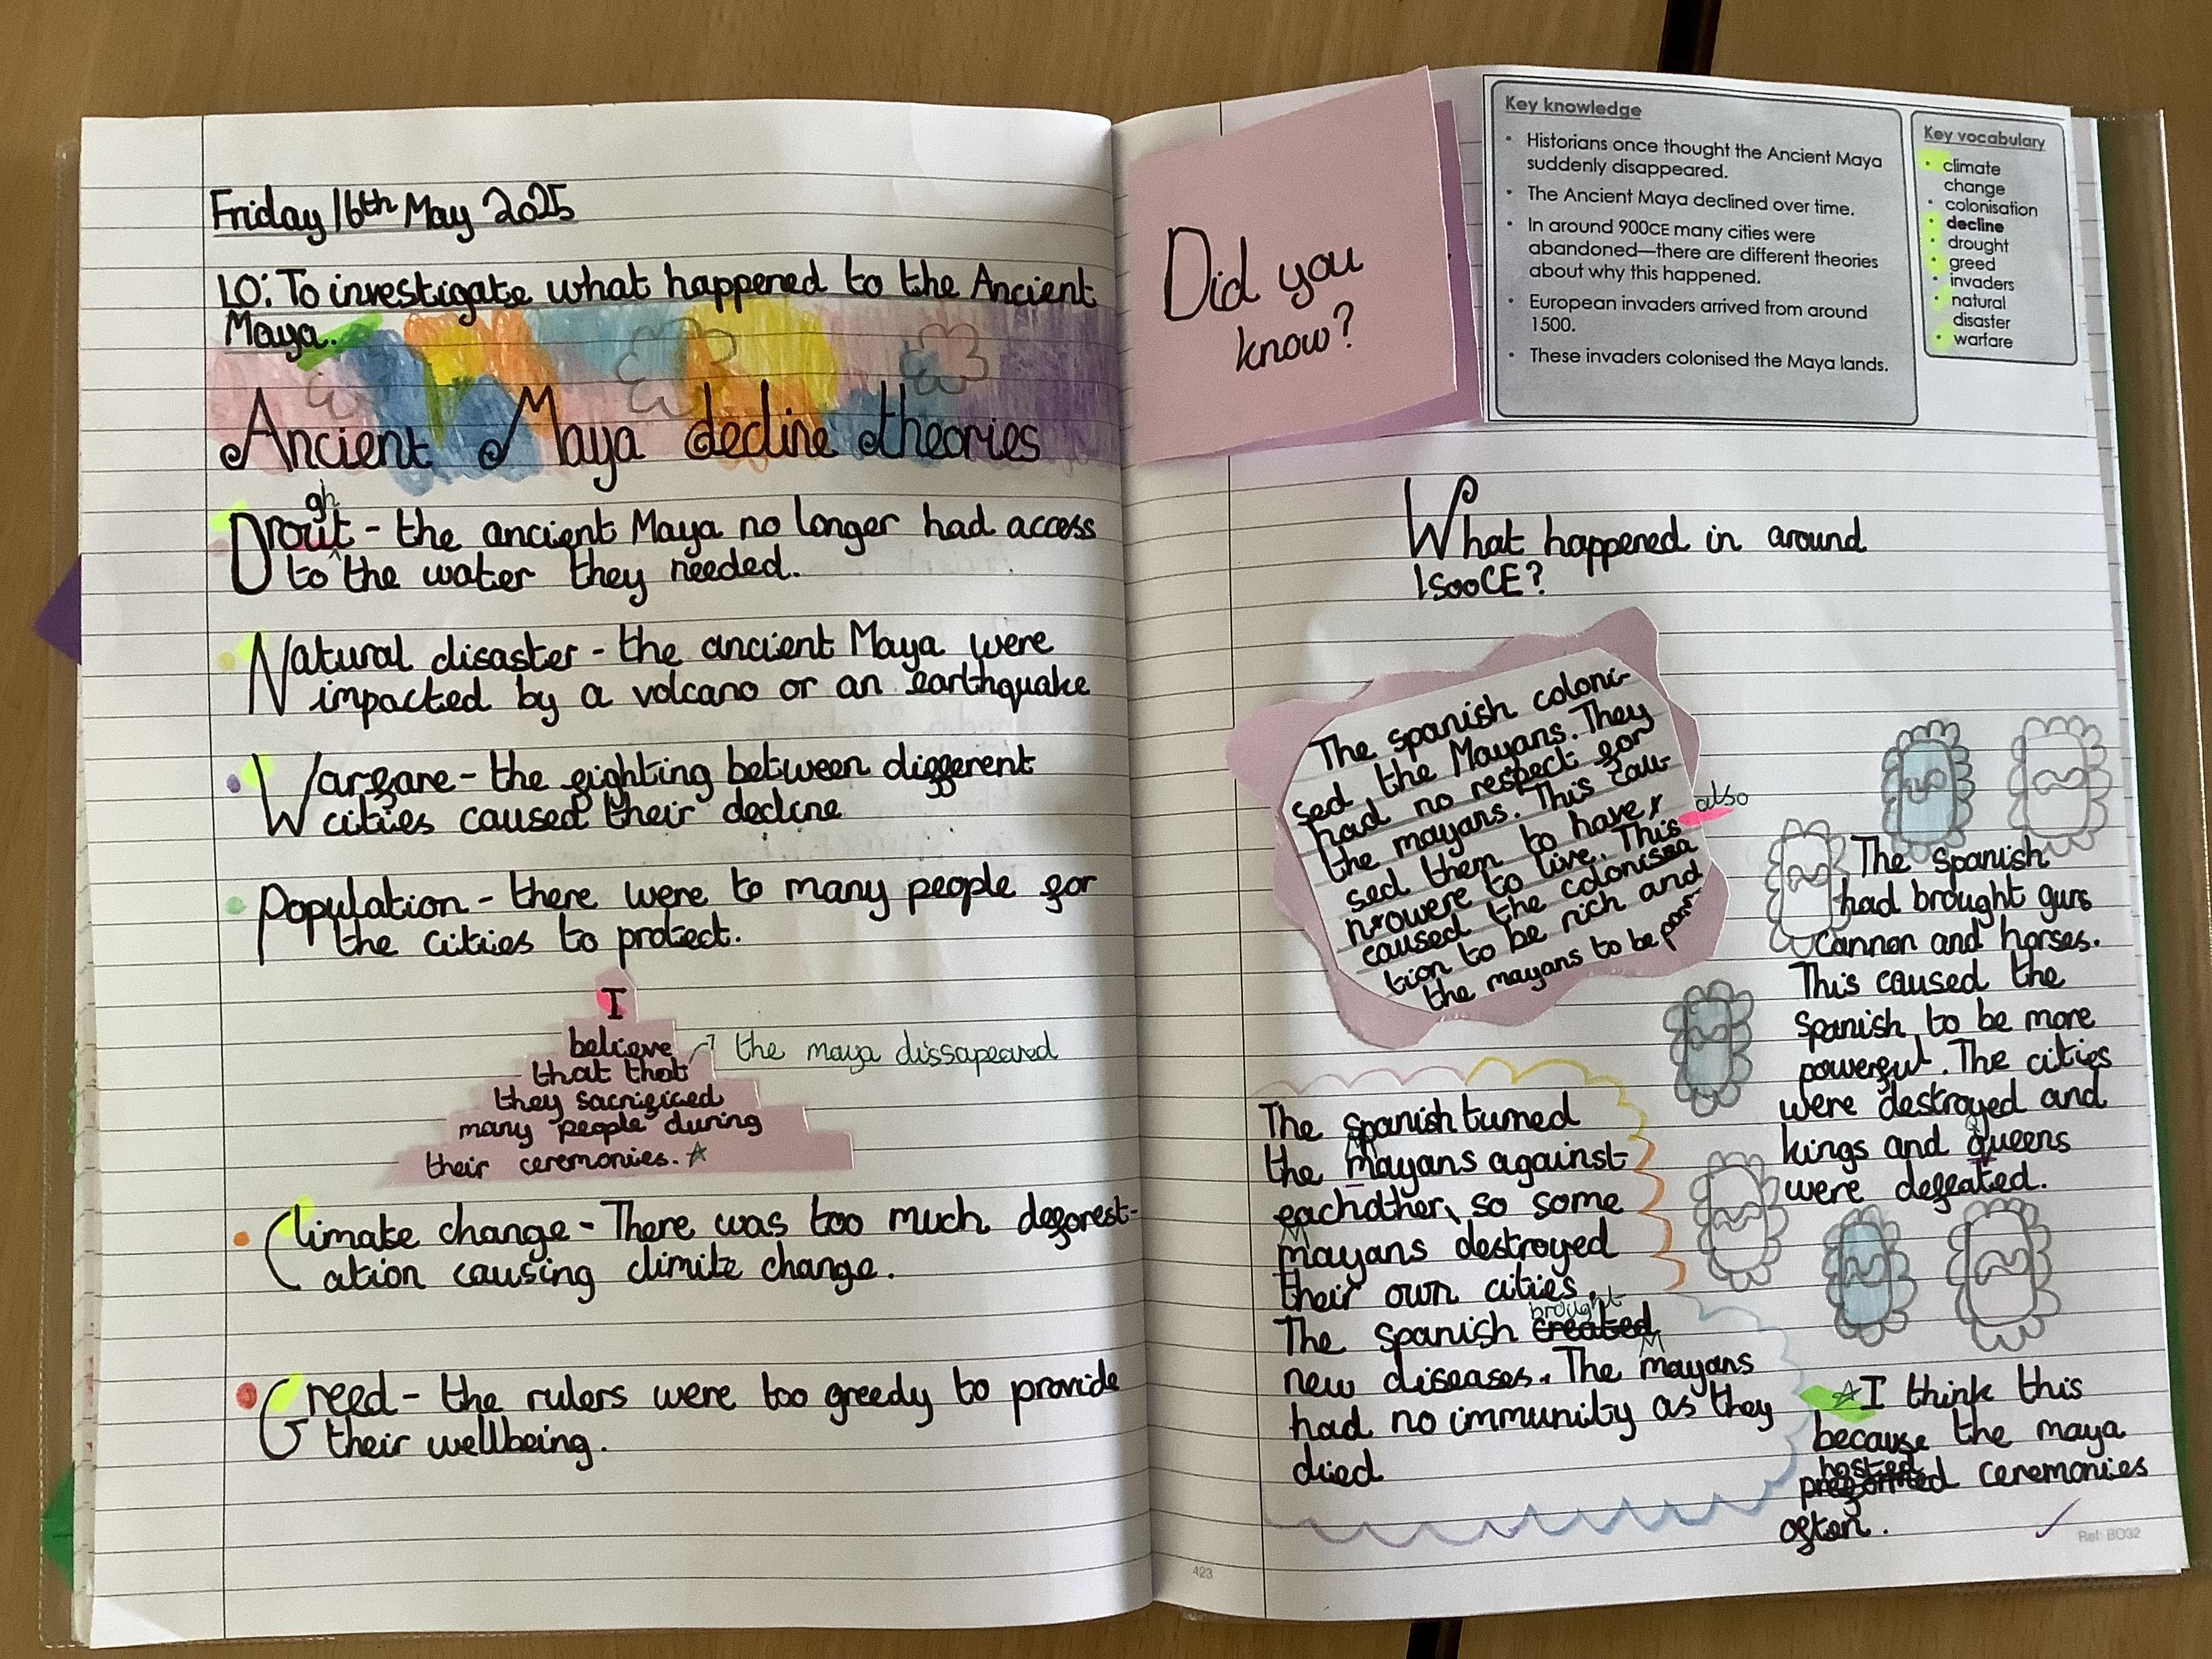 Friday 16th May 2025
LO: To investigate what happened to the Ancient
Maya.
Ancient Maya decline theories
gh
Drout - the ancient Maya no longer had access
to the water they needed.
Natural disaster - the ancient Maya were
impacted by a volcano or an earthquake
Warfare - the fighting between different
cities caused their decline
Population - there were to many people for
the cities to protect.
I
believe the maya dissapeared
that that
they sacrificed
many people during
their ceremonies.☆
Climate change - There was too much deforest-
ation causing climite change.
Greed - the rulers were too greedy to provide
their wellbeing.
Did you
know?
Key knowledge
• Historians once thought the Ancient Maya
suddenly disappeared.
• The Ancient Maya declined over time.
• In around 900CE many cities were
abandoned—there are different theories
about why this happened.
• European invaders arrived from around
1500.
• These invaders colonised the Maya lands.
Key vocabulary
• climate
change
• colonisation
• decline
• drought
• greed
• invaders
• natural
disaster
• warfare
What happened in around
1500CE?
The spanish coloni-
sed the Mayans. They
had no respect for
the mayans. This cau-
sed them to have
nowere to live. This also
caused the colonisea
tion to be rich and
the mayans to be poor
The spanish
had brought guns
cannon and horses.
This caused the
spanish to be more
powerful. The cities
were destroyed and
kings and queens
were defeated.
The spanish turned
the mayans against
eachother, so some
mayans destroyed
their own cities.
brought
The spanish created
M
new diseases. The mayans
had no immunity as they
died
☆I think this
because the maya
hosted
preformed ceremonies
often.
423
Ref: BO32